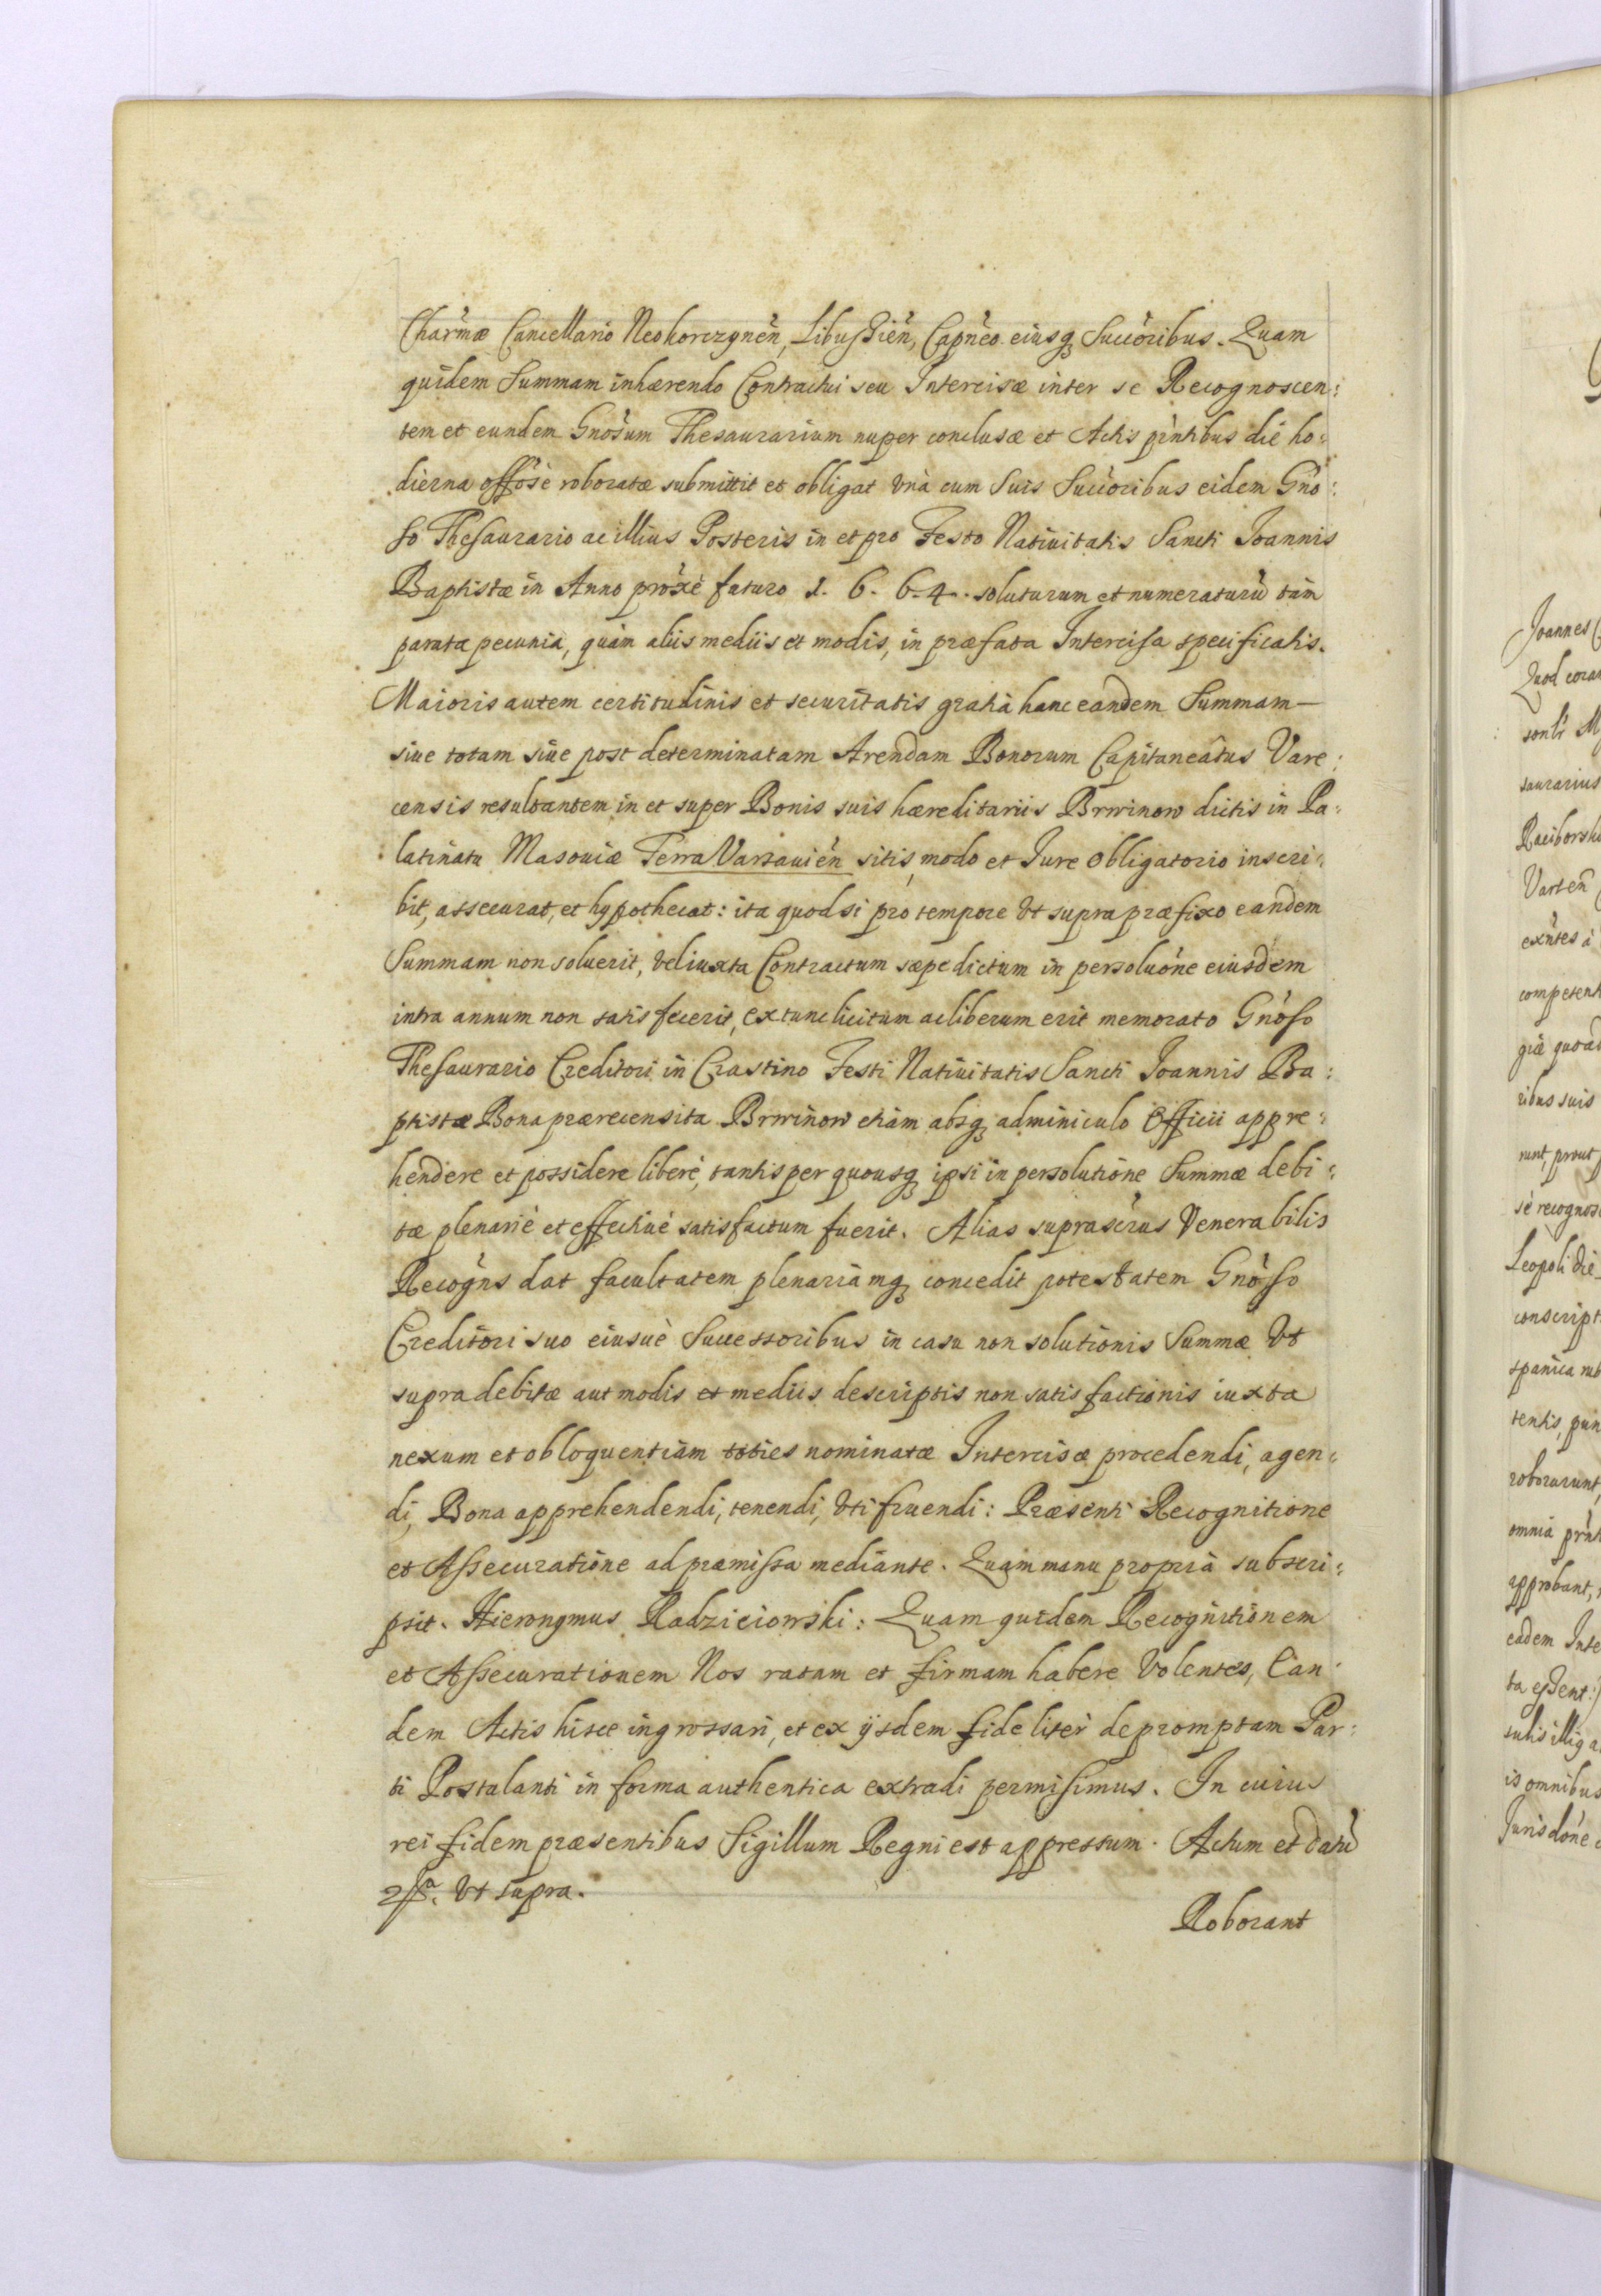 Charm̃æ Cancellario Neokorczynen̄, Libuszien̄, Capn̄eo eiusq₃ Succōribus. Quam
quidem Summam inhærendo Contractui seu Intercisæ inter se Recognoscen:
tem et eundem Gnōsum Thesaurarium nuper conclusæ et Actis pn̄tibus die ho:
dierna offōsè roboratæ submittit et obligat Vnà cum Suis Succōribus eidem Gnō:
so Thesaurario ac illius Posteris in et pro Festo Natiuitatis Sancti Joannis
Baptistæ in Anno prōxè futuro 1. 6. 6. 4. soluturum et numeraturū tàm
parata pecunia, quàm aliis mediis et modis, in præfata Intercisa specificatis.
Maioris autem certitudinis et securitatis gratià hanc eandem Summam —
siue totam siue post determinatam Arendam Bonorum Capitaneâtus Vare:
censis resultantem in et super Bonis suis hæreditariis Brwinow dictis in Pa:
latinatu Masouiæ Terra Varsauien̄ sitis, modo et Jure Obligatorio inscri:
bit, assecurat, et hypothecat: ita quod si pro tempore Vt supra præfixo eandem
Summam non soluerit, Vel iuxta Contractum sæpedictum in persoluōne eiusdem
intra annum non satisfecerit, extunc licitum ac liberum erit memorato Gnōso
Thesaurario Creditori in Crastino Festi Natiuitatis Sancti Joannis Ba:
ptistæ Bona prærecensita Brwinow etiàm absq₃ adminiculo Officii appre:
hendere et possidere liberè, tantisper quousq₃ ipsi in persolutione Summæ debi:
tæ plenariè et effectiuè satisfactum fuerit. Alias suprascr̄us Venerabilis
Recogn̄s dat facultatem plenariàmq₃ concedit potestatem Gnōso
Creditori suo eiusuè Successoribus in casu non solutionis Summæ Vt
supra debitæ aut modis et mediis descriptis non satisfactionis iuxta
nexum et obloquentiàm toties nominatæ Intercisæ procedendi, agen:
di, Bona apprehendendi, tenendi, Vtifruendi: Præsenti Recognitione
et Assecuratione ad præmissa mediante. Quam manu proprià subscri:
psit. Hieronymus Radzieiowski: Quam quidem Recognitionem
et Assecurationem Nos ratam et firmam habere Volentes, Ean:
dem Actis hisce ingrossari, et ex ijsdem fideliter depromptam Par:
ti Postulanti in forma authentica extradi permisimus. In cuius
rei fidem præsentibus Sigillum Regni est appressum. Actum et datū
Vt supra.
Roborant
Joannes
Quod
sonli
saurarius
Varten̄
exn̄tes à
competent
ribus suis
runt, prout
sè recognos
Leopoli die
conscript
roborarunt,
omnia
approbant,
eadem Inte
ta essent:
is omnibus
Jurisdōne